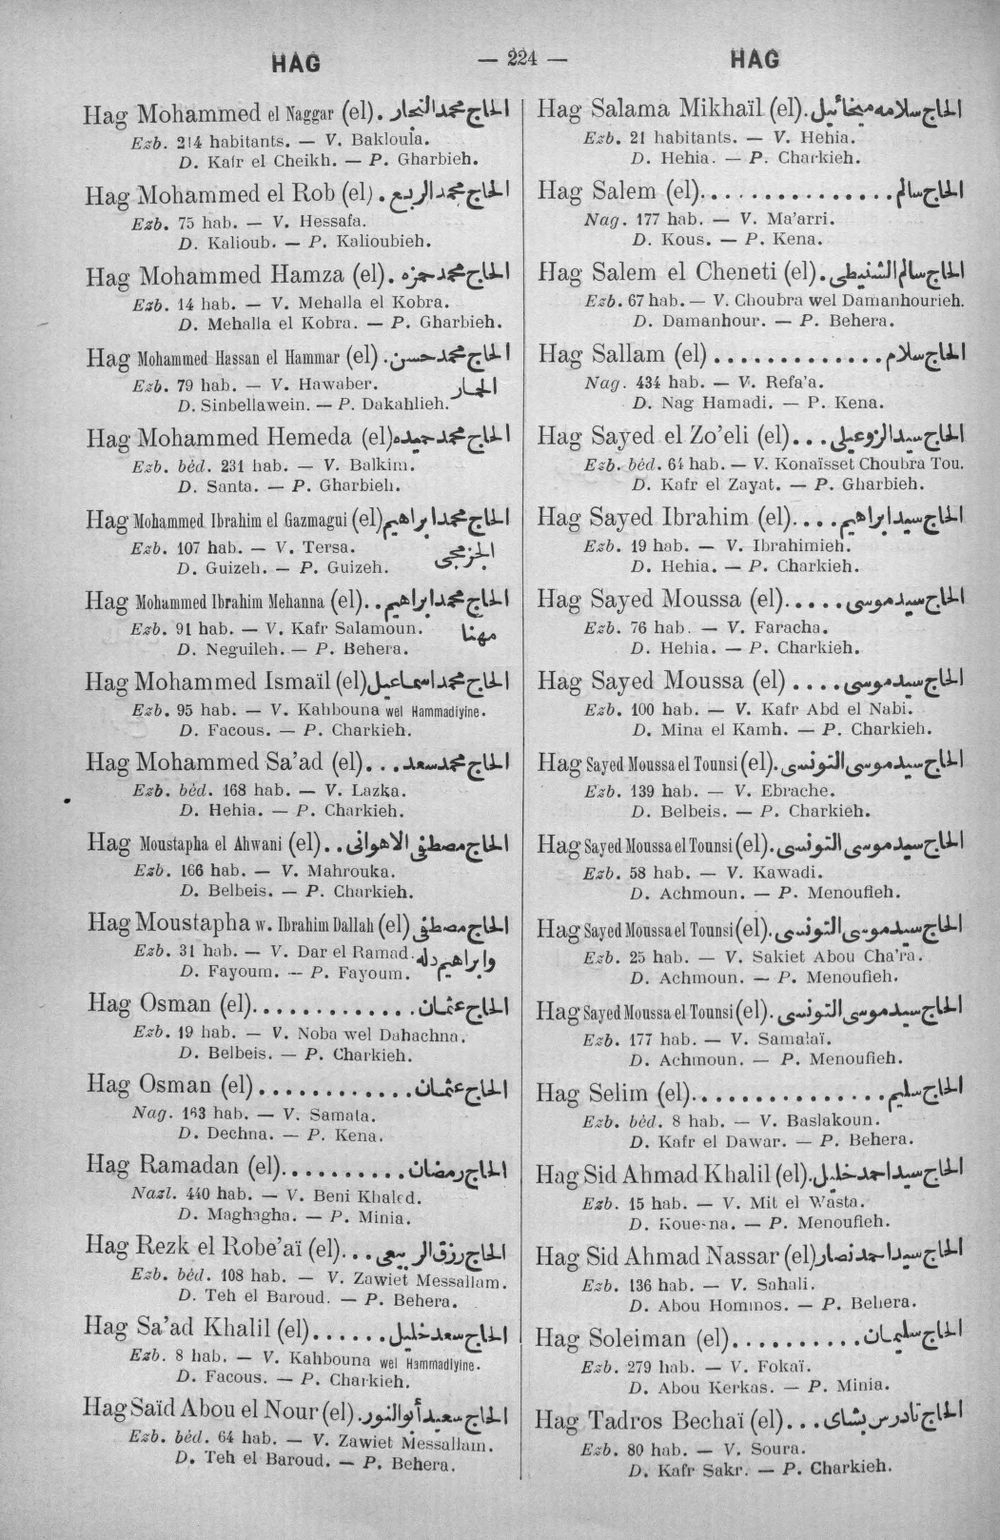 HAG
— 224 —
HAG
Hag Mohammed el Naggar (el). الحاج محمد النجار
Ezb. 214 habitants. — V. Bakloula.
D. Kafr el Cheikh. — P. Gharbieh.
Hag Mohammed el Rob (el). الحاج محمد الربع
Ezb. 75 hab. — V. Hessafa.
D. Kalioub. — P. Kalioubieh.
Hag Mohammed Hamza (el). الحاج محمد حمزه
Ezb. 14 hab. — V. Mehalla el Kobra.
D. Mehalla el Kobra. — P. Gharbieh.
Hag Mohammed Hassan el Hammar (el). الحاج محمد حسن
Ezb. 79 hab. — V. Hawaber. الحمار
D. Sinbellawein. — P. Dakahlieh.
Hag Mohammed Hemeda (el) الحاج محمد حميده
Ezb. béd. 231 hab. — V. Balkim.
D. Santa. — P. Gharbieh.
Hag Mohammed Ibrahim el Gazmagui (el) الحاج محمد ابراهيم
Ezb. 107 hab. — V. Tersa. الجزمجى
D. Guizeh. — P. Guizeh.
Hag Mohammed Ibrahim Mehanna (el).. الحاج محمد ابراهيم
Ezb. 91 hab. — V. Kafr Salamoun. مهنا
D. Neguileh. — P. Behera.
Hag Mohammed Ismaïl (el) الحاج محمد اسماعيل
Ezb. 95 hab. — V. Kahbouna wel Hammadiyine.
D. Facous. — P. Charkieh.
Hag Mohammed Sa'ad (el)... الحاج محمد سعد
Ezb. béd. 168 hab. — V. Lazka.
D. Hehia. — P. Charkieh.
Hag Moustapha el Ahwani (el).. الحاج مصطفى الاهوانى
Ezb. 166 hab. — V. Mahrouka.
D. Belbeis. — P. Charkieh.
Hag Moustapha w. Ibrahim Dallah (el) الحاج مصطفى
Ezb. 31 hab. — V. Dar el Ramad. وابراهيم دله
D. Fayoum. — P. Fayoum.
Hag Osman (el)............. الحاج عثمان
Ezb. 19 hab. — V. Noba wel Dahachna.
D. Belbeis. — P. Charkieh.
Hag Osman (el)............. الحاج عثمان
Nag. 163 hab. — V. Samata.
D. Dechna. — P. Kena.
Hag Ramadan (el).......... الحاج رمضان
Nazl. 440 hab. — V. Beni Khaled.
D. Maghagha. — P. Minia.
Hag Rezk el Robe'aï (el)... الحاج رزق الربيعى
Ezb. béd. 108 hab. — V. Zawiet Messallam.
D. Teh el Baroud. — P. Behera.
Hag Sa'ad Khalil (el)...... الحاج سعد خليل
Ezb. 8 hab. — V. Kahbouna wel Hammadiyine.
D. Facous. — P. Charkieh.
Hag Saïd Abou el Nour (el). الحاج سعيد أبو النور
Ezb. béd. 64 hab. — V. Zawiet Messallam.
D. Teh el Baroud. — P. Behera.
Hag Salama Mikhaïl (el). الحاج سلامه ميخائيل
Ezb. 21 habitants. — V. Hehia.
D. Hehia. — P. Charkieh.
Hag Salem (el)............... الحاج سالم
Nag. 177 hab. — V. Ma'arri.
D. Kous. — P. Kena.
Hag Salem el Cheneti (el). الحاج سالم الشنيطى
Ezb. 67 hab. — V. Choubra wel Damanhourieh.
D. Damanhour. — P. Behera.
Hag Sallam (el) ............. الحاج سلام
Nag. 434 hab. — V. Refa'a.
D. Nag Hamadi. — P. Kena.
Hag Sayed el Zo'eli (el)... الحاج سيد الزوعيلى
Ezb. béd. 64 hab. — V. Konaïsset Choubra Tou.
D. Kafr el Zayat. — P. Gharbieh.
Hag Sayed Ibrahim (el).... الحاج سيد ابراهيم
Ezb. 19 hab. — V. Ibrahimieh.
D. Hehia. — P. Charkieh.
Hag Sayed Moussa (el)..... الحاج سيد موسى
Ezb. 76 hab. — V. Faracha.
D. Hehia. — P. Charkieh.
Hag Sayed Moussa (el) .... الحاج سيد موسى
Ezb. 100 hab. — V. Kafr Abd el Nabi.
D. Mina el Kamh. — P. Charkieh.
Hag Sayed Moussa el Tounsi (el). الحاج سيد موسى التونسى
Ezb. 139 hab. — V. Ebrache.
D. Belbeis. — P. Charkieh.
Hag Sayed Moussa el Tounsi (el). الحاج سيد موسى التونسى
Ezb. 58 hab. — V. Kawadi.
D. Achmoun. — P. Menoufieh.
Hag Sayed Moussa el Tounsi (el). الحاج سيد موسى التونسى
Ezb. 25 hab. — V. Sakiet Abou Cha'ra.
D. Achmoun. — P. Menoufieh.
Hag Sayed Moussa el Tounsi (el). الحاج سيد موسى التونسى
Ezb. 177 hab. — V. Samalaï.
D. Achmoun. — P. Menoufieh.
Hag Selim (el)............... الحاج سليم
Ezb. béd. 8 hab. — V. Baslakoun.
D. Kafr el Dawar. — P. Behera.
Hag Sid Ahmad Khalil (el). الحاج سيد احمد خليل
Ezb. 15 hab. — V. Mit el Wasta.
D. Kouesna. — P. Menoufieh.
Hag Sid Ahmad Nassar (el) الحاج سيد احمد نصار
Ezb. 136 hab. — V. Sahali.
D. Abou Hommos. — P. Behera.
Hag Soleiman (el).......... الحاج سليمان
Ezb. 279 hab. — V. Fokaï.
D. Abou Kerkas. — P. Minia.
Hag Tadros Bechaï (el)... الحاج تادرس بشاى
Ezb. 80 hab. — V. Soura.
D. Kafr Sakr. — P. Charkieh.